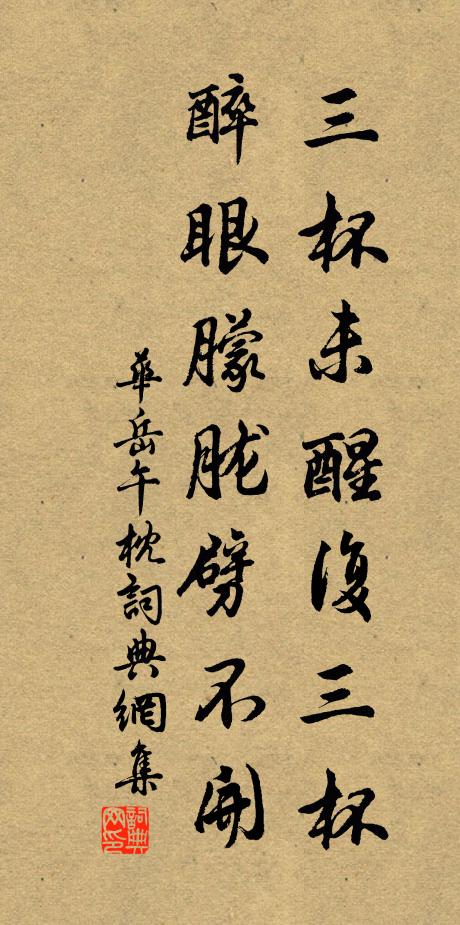 三杯未醒復三杯
醉眼朦朧劈不開
華岳午枕詞典網集
詞典网印